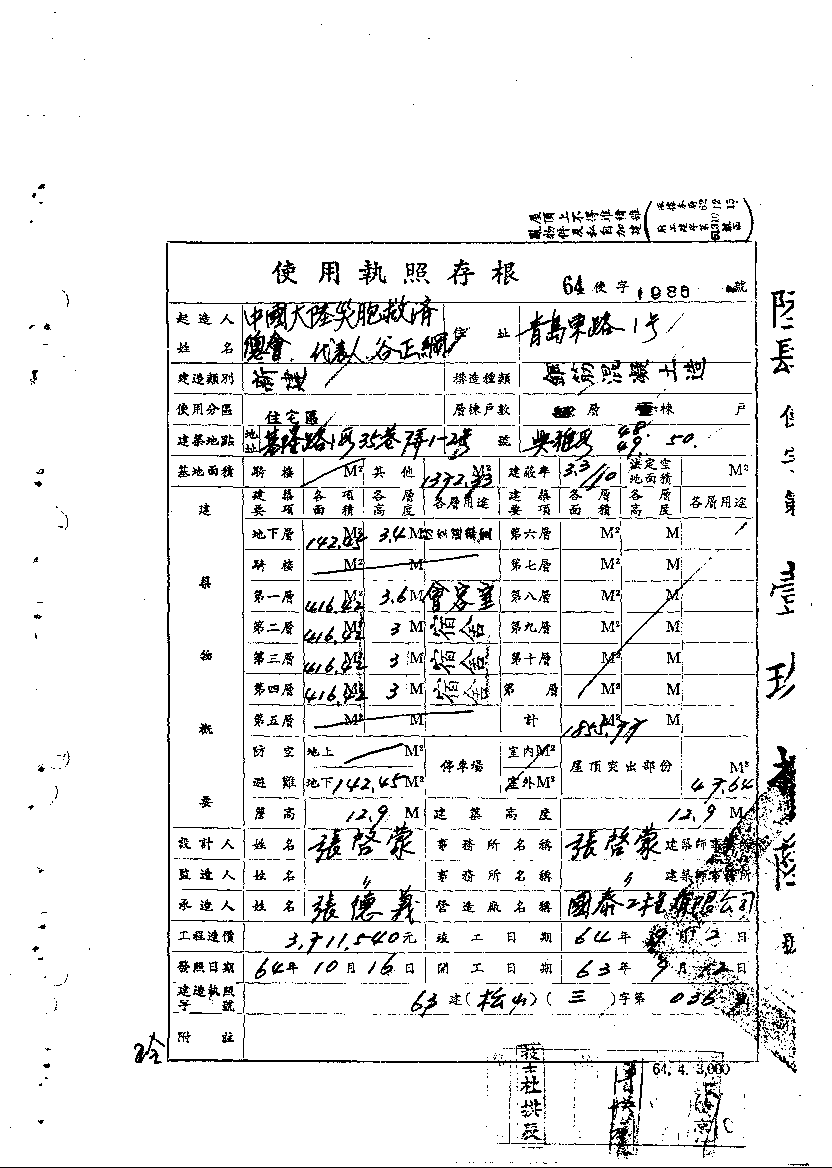 屋頂上不得堆積雜
物件及私自加建
使用執照存根
64使字1986號
起造人姓名 中國大陸災胞救濟總會 代表人 谷正綱 住址 青島東路1号
建造類別 構造種類 鋼筋混凝土造
使用分區 住宅區 層棟戶數 層 棟 戶
建築地點 地址 基隆路1段35巷7弄1-2号 號 吳雅段 48. 49. 50.
基地面積 騎樓 M² 其他 1372.33 M² 建蔽率 3.3/10 法定空地面積 M²
建築物概要 建築要項 各項面積 各層高度 各層用途 建築要項 各層面積 各層高度 各層用途
地下層 142.45 M² 3.4 M 第六層 M² M
騎樓 M² M 第七層 M² M
第一層 416.42 M² 3.6 M 會客室 第八層 M² M
第二層 416.42 M² 3 M 宿舍 第九層 M² M
第三層 416.42 M² 3 M 宿舍 第十層 M² M
第四層 416.42 M² 3 M 宿舍 第 層 M² M
第五層 M² M 計 1855.77 M² M
防空避難 地上 M² 停車場 室內M² 屋頂突出部份 M²
地下 142.45 M² 室外M² 47.64
簷高 12.9 M 建築高度 12.9 M
設計人 姓名 張啓蒙 事務所名稱 張啓蒙 建築師事務所
監造人 姓名 〃 事務所名稱 〃 建築師事務所
承造人 姓名 張德義 營造廠名稱 國泰工程有限公司
工程造價 3,711,540元 竣工日期 64年 月2日
發照日期 64年10月16日 開工日期 63年9月12日
建造執照字號 63建(松山)(三)字第036號
附註
64. 4. 3,000